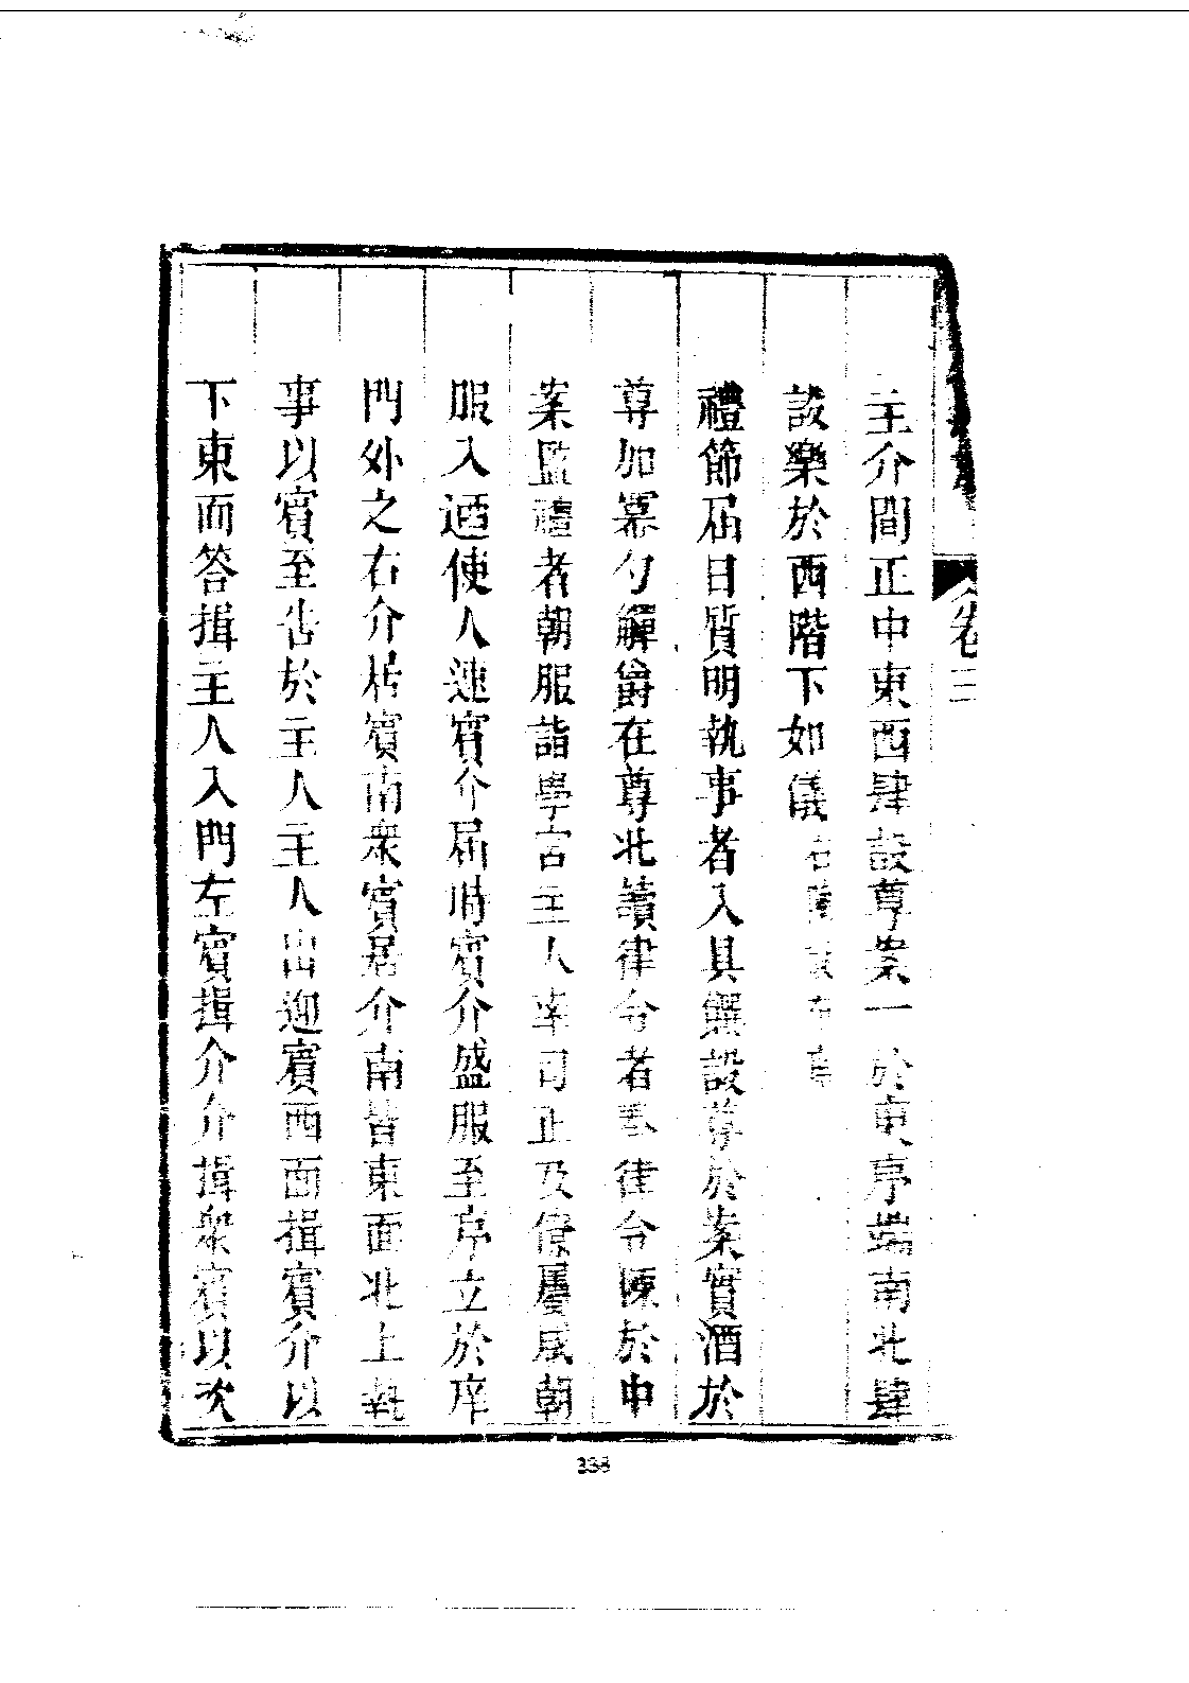 主介間正中東西肆設尊案一於東序端南北肆
設樂於西階下如儀
禮節届日質明執事者入具饌設尊於案實酒於
尊加冪勺觶爵在尊北讀律令者奉律令陳於中
案監禮者朝服詣學宮主人率司正及僚屬咸朝
服入迺使人速賓介届時賓介盛服至序立於庠
門外之右介居賓南衆賓居介南皆東面北上執
事以賓至告於主人主人出迎賓西面揖賓介以
下東面答揖主人入門左賓揖介介揖衆賓以次
卷三
238